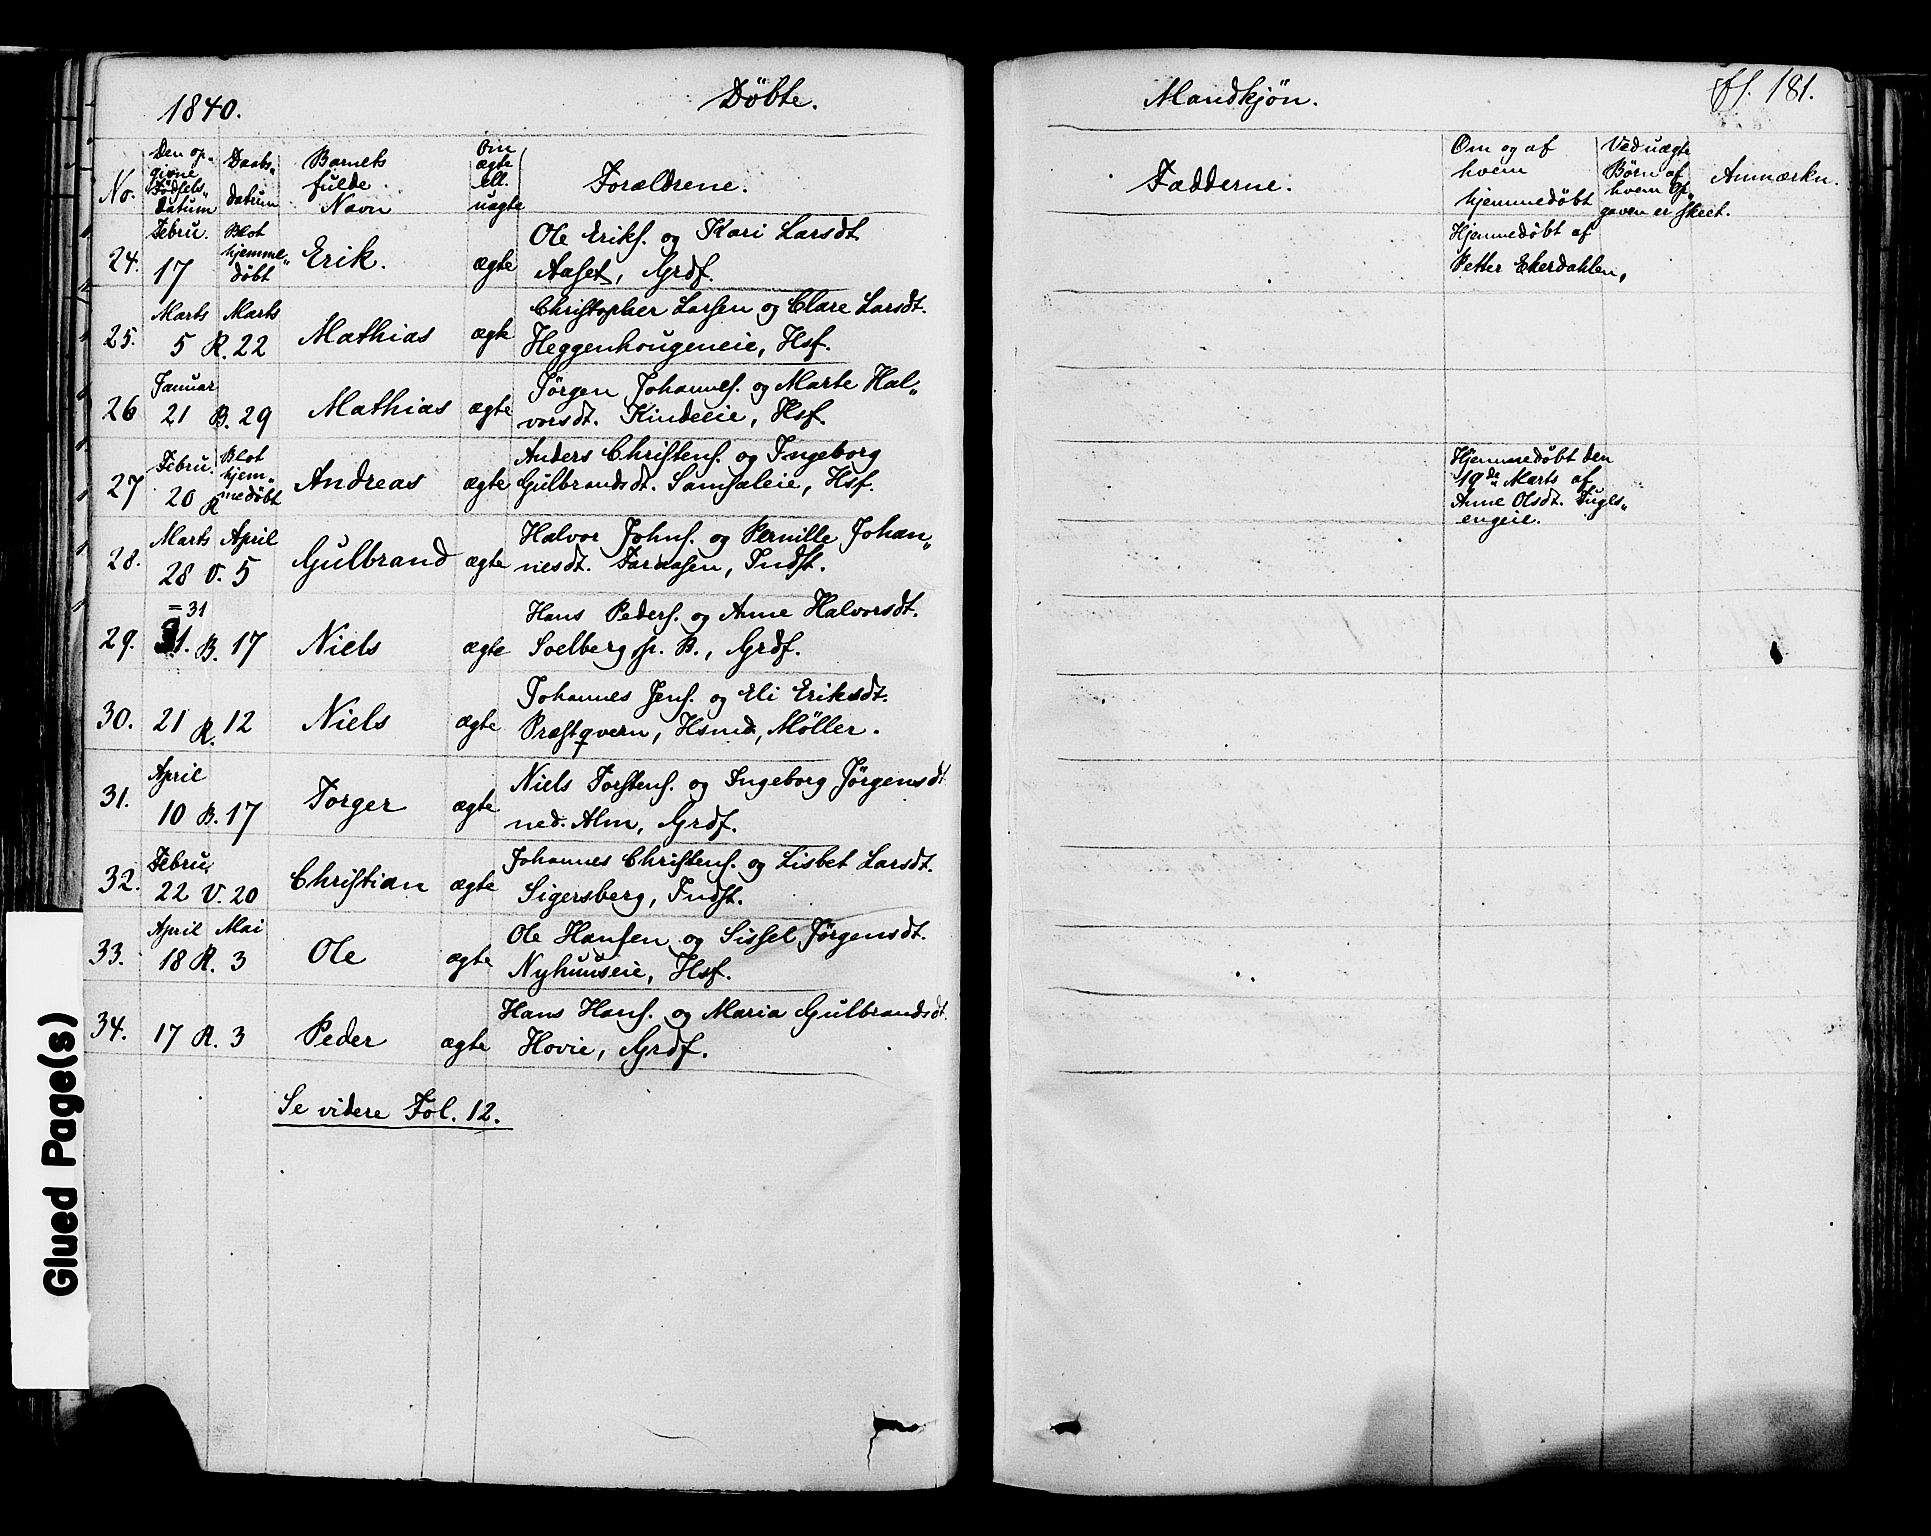 1840. Døbte. Mandkjøn. fl. 181.
No. Den op- givne Fødsels- datum Daabs- datum Barnets fulde Navn Om ægte ell. uægte Forældrene. Fadderne. Om og af hvem hjemmedøbt Ved uægte Børn af hvem Op- gaven er skeet. Anmærkn.
24. Febru. 17 Blot hjemme- døbt Erik. ægte Ole Eriks. og Kari Larsdt. Hjemmedøbt af
Aaset, Grdf. Petter Ekerdahlen,
25. Marts 5 Marts R. 22 Mathias ægte Christopher Larsen og Clare Larsdt.
Heggenhougeneie, Hsf.
26 Januar 21 B. 29 Mathias ægte Jørgen Johannes. og Marte Hal-
vorsdt. Kindeeie, Hsf.
27 Febru. 20 R Blot hjem- medøbt Andreas ægte Anders Christens. og Ingeborg Hjemmedøbt den
Gulbrandsdt. Samsaleie, Hsf. 19de Marts af
Anne Olsdt. Fugls-
engeie.
28. Marts 28 April V. 5 Gulbrand ægte Halvor Johns. og Pernille Johan-
nesdt. Faraasen, Indst.
29. =31
31. B. 17 Niels ægte Hans Peders. og Anne Halvorsdt.
Soelberg sp. B., Grdf.
30. 21 R. 12 Niels ægte Johannes Jens. og Eli Eriksdt.
Præstqvern, Hsmd, Møller.
31. April 10 B. 17 Torger ægte Niels Torstens. og Ingeborg Jørgensdt
ned. Alm, Grdf.
32. Febru. 22 V. 20 Christian ægte Johannes Christens. og Lisbet Larsdt.
Sigersberg, Indst.
33. April 18 Mai R. 3 Ole ægte Ole Hansen og Sissel Jørgensdt.
Nyhuuseie, Hsf.
34. 17 R. 3 Peder ægte Hans Hans. og Maria Gulbrandsdt.
Hovie, Grdf.
Se videre Fol. 12.
Glued Page(s)